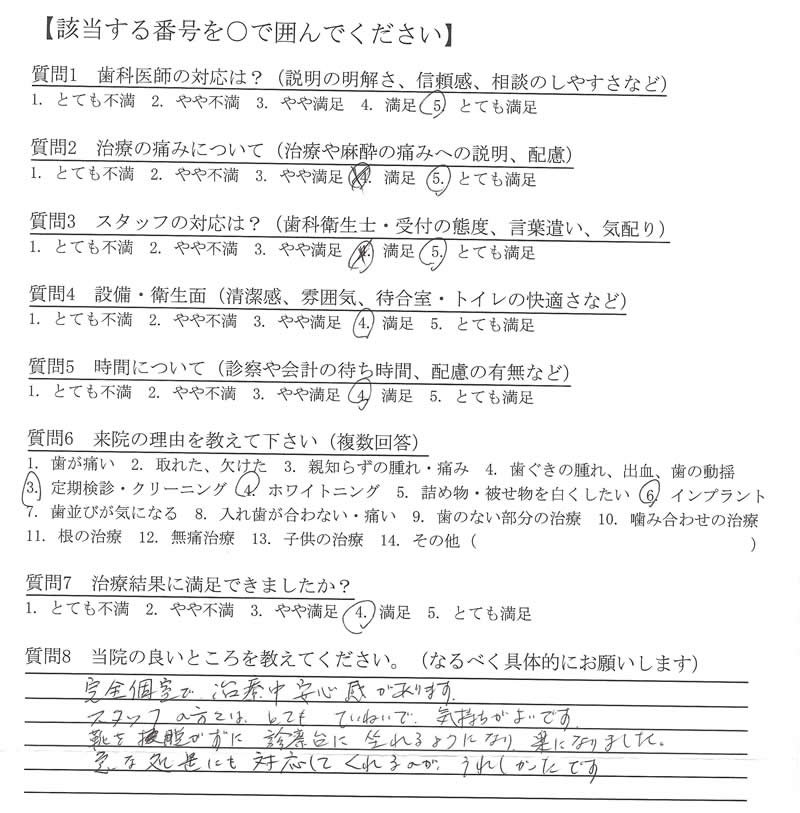 【該当する番号を○で囲んでください】
質問1　歯科医師の対応は？（説明の明解さ、信頼感、相談のしやすさなど）
1. とても不満　2. やや不満　3. やや満足　4. 満足　5. とても満足
質問2　治療の痛みについて（治療や麻酔の痛みへの説明、配慮）
1. とても不満　2. やや不満　3. やや満足　4. 満足　5. とても満足
質問3　スタッフの対応は？（歯科衛生士・受付の態度、言葉遣い、気配り）
1. とても不満　2. やや不満　3. やや満足　4. 満足　5. とても満足
質問4　設備・衛生面（清潔感、雰囲気、待合室・トイレの快適さなど）
1. とても不満　2. やや不満　3. やや満足　4. 満足　5. とても満足
質問5　時間について（診察や会計の待ち時間、配慮の有無など）
1. とても不満　2. やや不満　3. やや満足　4. 満足　5. とても満足
質問6　来院の理由を教えて下さい（複数回答）
1. 歯が痛い　2. 取れた、欠けた　3. 親知らずの腫れ・痛み　4. 歯ぐきの腫れ、出血、歯の動揺
3. 定期検診・クリーニング　4. ホワイトニング　5. 詰め物・被せ物を白くしたい　6. インプラント
7. 歯並びが気になる　8. 入れ歯が合わない・痛い　9. 歯のない部分の治療　10. 噛み合わせの治療
11. 根の治療　12. 無痛治療　13. 子供の治療　14. その他（　　　　　　　　　　）
質問7　治療結果に満足できましたか？
1. とても不満　2. やや不満　3. やや満足　4. 満足　5. とても満足
質問8　当院の良いところを教えてください。（なるべく具体的にお願いします）
完全個室で治療中安心感があります。
スタッフの方も とても ていねいで、気持ちがよいです。
靴を 脱がずに 診察台に 坐れるようになり、楽になりました。
急な処置にも対応してくれるのが、うれしかったです